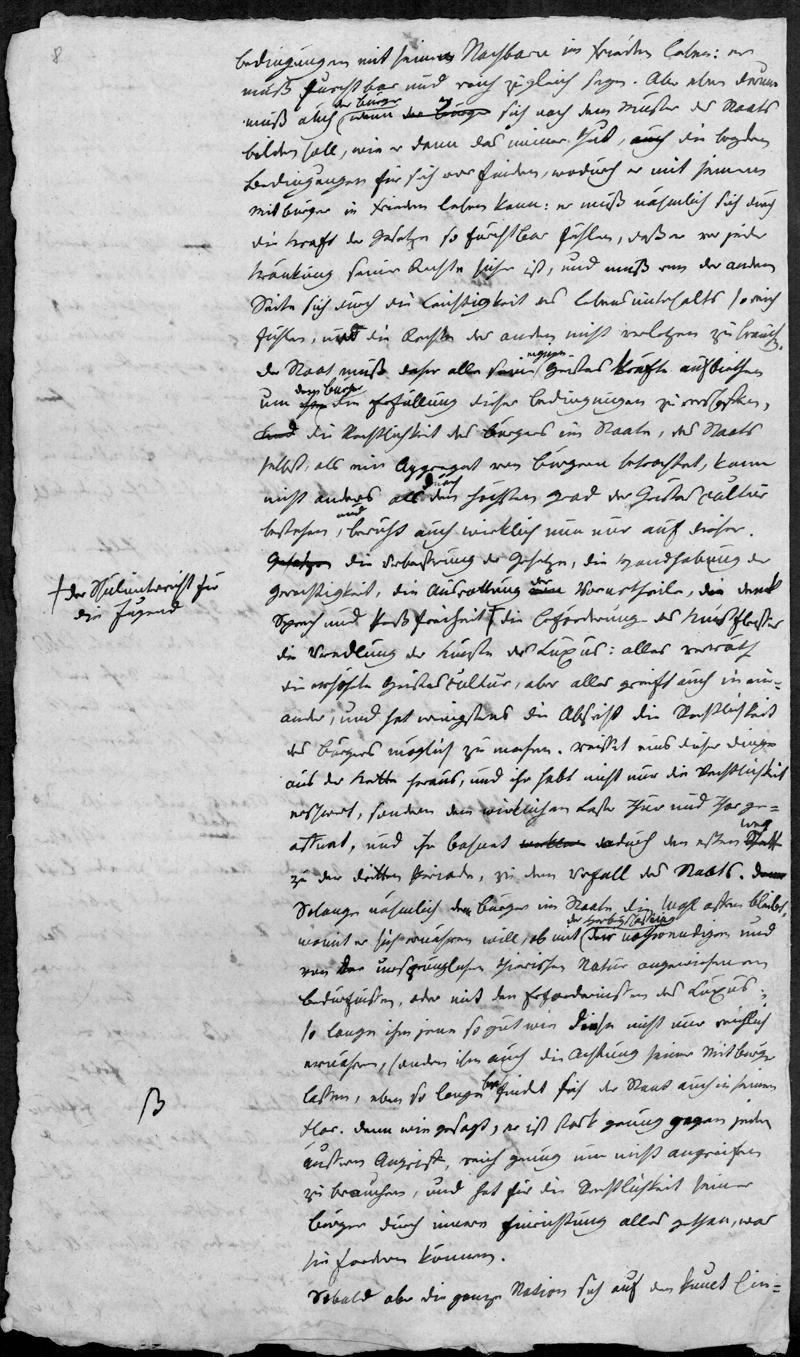 8
bedingungen mit seinen Nachbarn in Frieden leben: er
muß furchtbar und reich zugleich seyn. Aber eben darum
muß auch der Bürger wenn der Bürger er sich nach dem Muster des Staats
bilden soll, wie er denn das immer thut, auch die beyden
Bedingungen für sich vor finden, wodurch er mit seinem
Mitbürger in Frieden leben kann: er muß nähmlich sich durch
die Kraft der Gesetze so furchtbar fühlen, daß er vor jeder
Kränkung seiner Rechte sicher ist, und muß von der andern
Seite sich durch die Leichtigkeit des Lebensunterhalts so reich
fühlen, um die Rechte der andern nicht verletzen zu brauchen.
der Staat muß daher alle seine eigenen Geistes Kräfte aufbiethen
um dem Bürger ihm die Erfüllung dieser Bedingungen zu verschaffen,
denn die Rechtlichkeit des Bürgers im Staate, des Staats
selbst, als ein Aggregat von Bürgern betrachtet, kann
nicht anders als durch den höchsten Grad der Geistescultur
bestehen, und beruht auch wirklich nun nur auf dieser.
Gesetzen die Verbesserung der Gesetze, die Handhabung der
Gerechtigkeit, die Ausrottung der Vorurtheile, die Denk
Sprech und Preßfreiheit † die Beförderung des Kunstfleißes
† der Schulunterricht für
die Jugend
die Veredlung der Künste des Luxus: alles verräth
die erhöhte Geistescultur, aber alles greift auch in ein=
ander, und hat wenigstens die Absicht die Rechtlichkeit
des Bürgers möglich zu machen. Reisset eins dieser Dinge
aus der Kette heraus, und ihr habt nicht nur die Rechtlichkeit
erschwert, sondern dem wirklichen Laster Thür und Thor ge=
öffnet, und ihr bahnet dadurch den ersten Weg
zu der dritten Periode, zu dem Verfall des Staats.
Solange nähmlich dem Bürger im Staate die Wahl offen bleibt,
womit er sich ernähren will, ob mit der Herbeyschaffung der nothwendigen und
von der ursprünglichen thierischen Natur angewiesenen
Bedürfnissen, oder mit den Erfordernissen des Luxus;
so lange ihm jene so gut wie diese nicht nur reichlich
ernähren, sondern ihm auch die Achtung seiner Mitbürger
lassen, eben so lange befindet sich der Staat auch in seinem
Flor. denn wie gesagt, er ist stark genug gegen jeden
äussern Angriff, reich genug um nicht angreifen
zu brauchen, und hat für die Rechtlichkeit seiner
Bürger durch innere Einrichtung alles gethan, was
sie fordern können.
Sobald aber die ganze Nation sich auf den Punct hin=